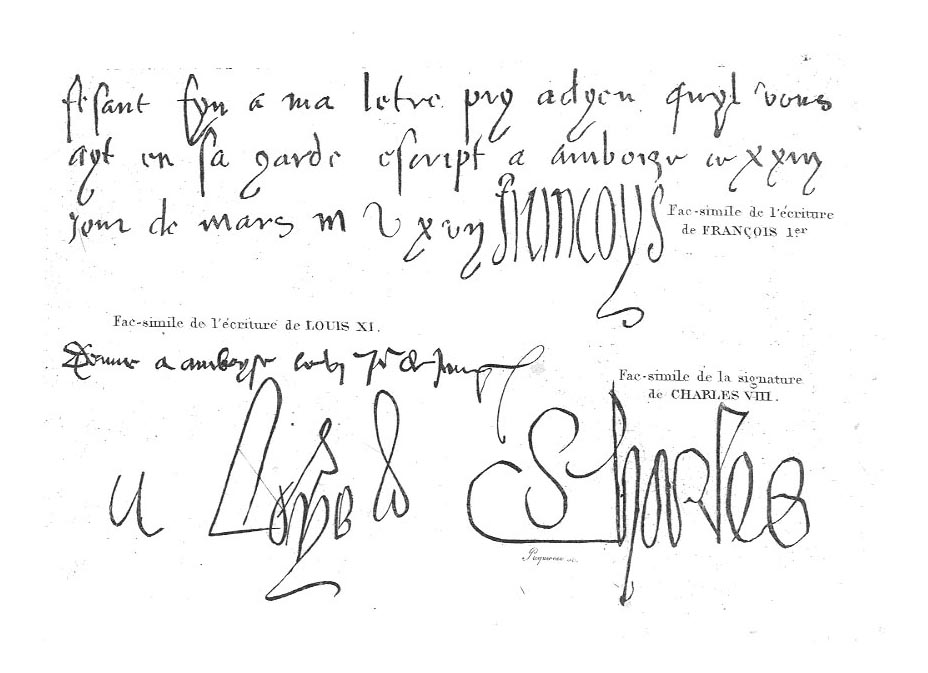 fesant fyn a ma letre pry adyeu quyl vous
ayt en sa garde escript a amboyse ce xxvij
jour de mars m v xvij francoys
Fac-simile de l'écriture
de FRANÇOIS 1er
Fac-simile de l'écriture de LOUIS XI.
Donne a amboyse
Loys
Fac-simile de la signature
de CHARLES VIII.
Charles